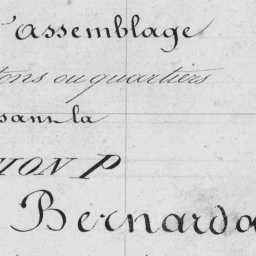 assemblage
tons ou quartiers
sans la
ION P
Bernarda